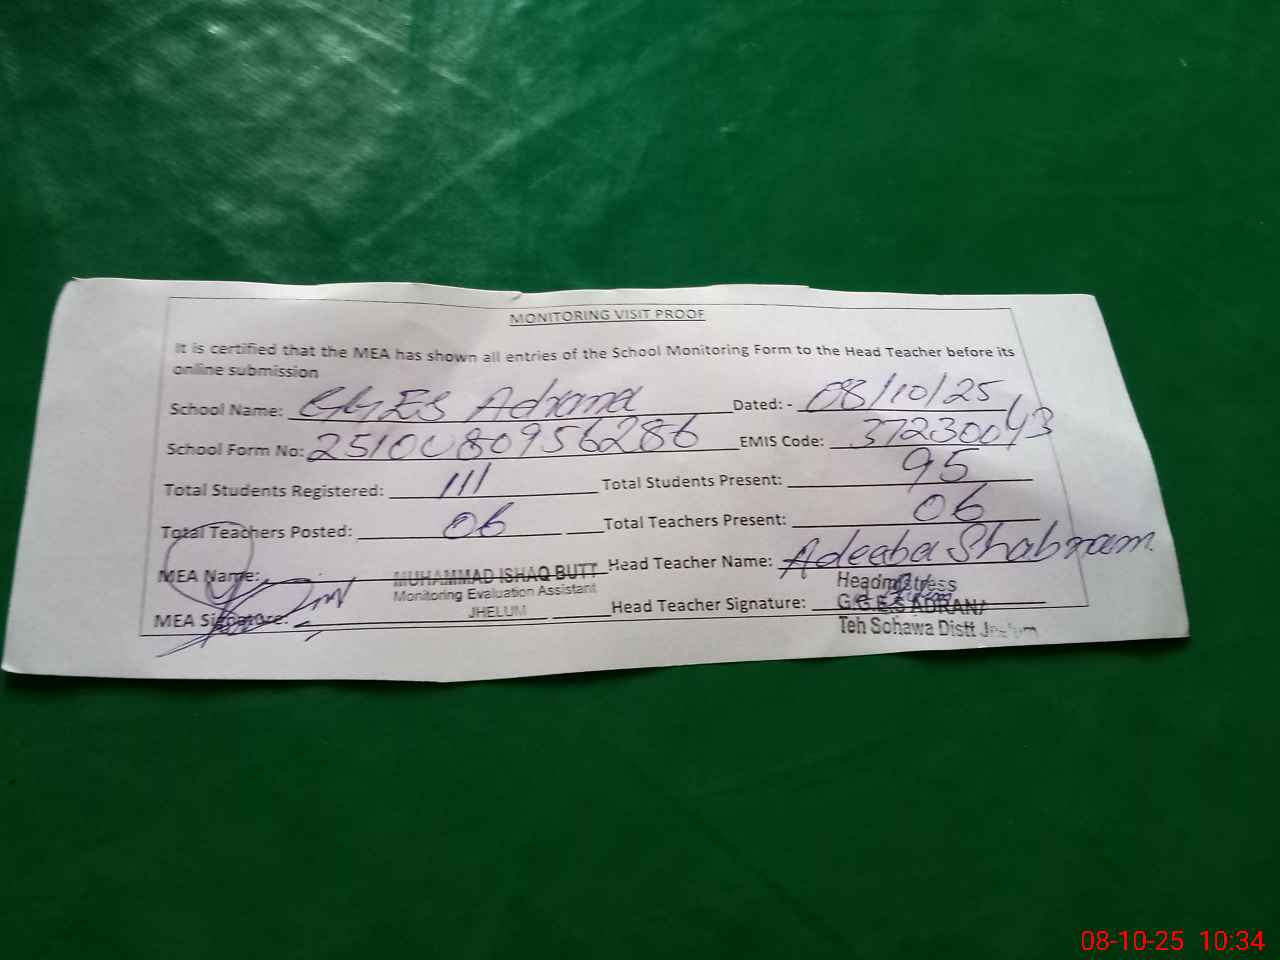 MONITORING VISIT PROOF
It is certified that the MEA has shown all entries of the School Monitoring Form to the Head Teacher before its
online submission
School Name: GGES Adrana Dated: - 08/10/25
School Form No: 2510080956286 EMIS Code: 37230043
Total Students Registered: 111 Total Students Present: 95
Total Teachers Posted: 06 Total Teachers Present: 06
MEA Name: MUHAMMAD ISHAQ BUTT Head Teacher Name: Adeeba Shabnam
Monitoring Evaluation Assistant Headmistress
MEA Signature: JHELUM Head Teacher Signature: G.G.E.S ADRANA
Teh Sohawa Distt Jhelum
08-10-25 10:34